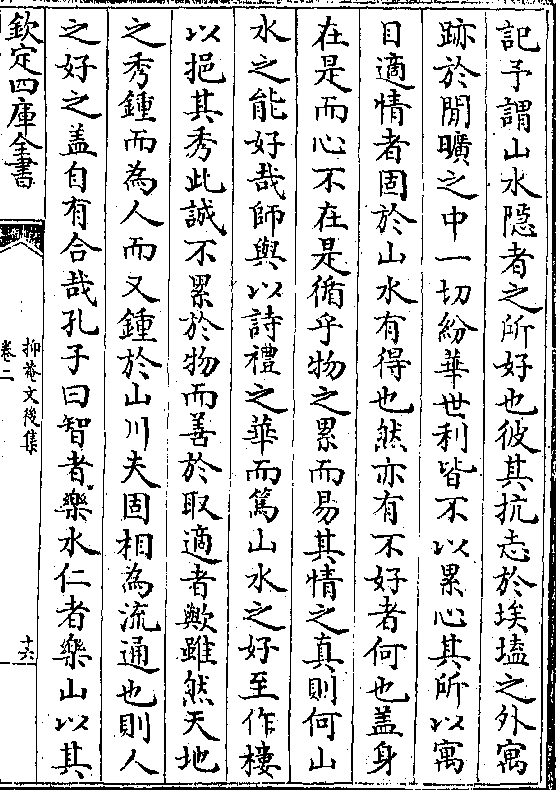 記予謂山水隱者之所好也彼其抗志於埃壒之外寓
跡於閒曠之中一切紛華世利皆不以累心其所以寓
目適情者固於山水有得也然亦有不好者何也盖身
在是而心不在是循乎物之累而易其情之真則何山
水之能好哉師與以詩禮之華而篤山水之好至作樓
以挹其秀此誠不累於物而善於取適者歟雖然天地
之秀鍾而為人而又鍾於山川夫固相為流通也則人
之好之盖自有合哉孔子曰智者樂水仁者樂山以其
欽定四庫全書
抑菴文後集
卷二
十六